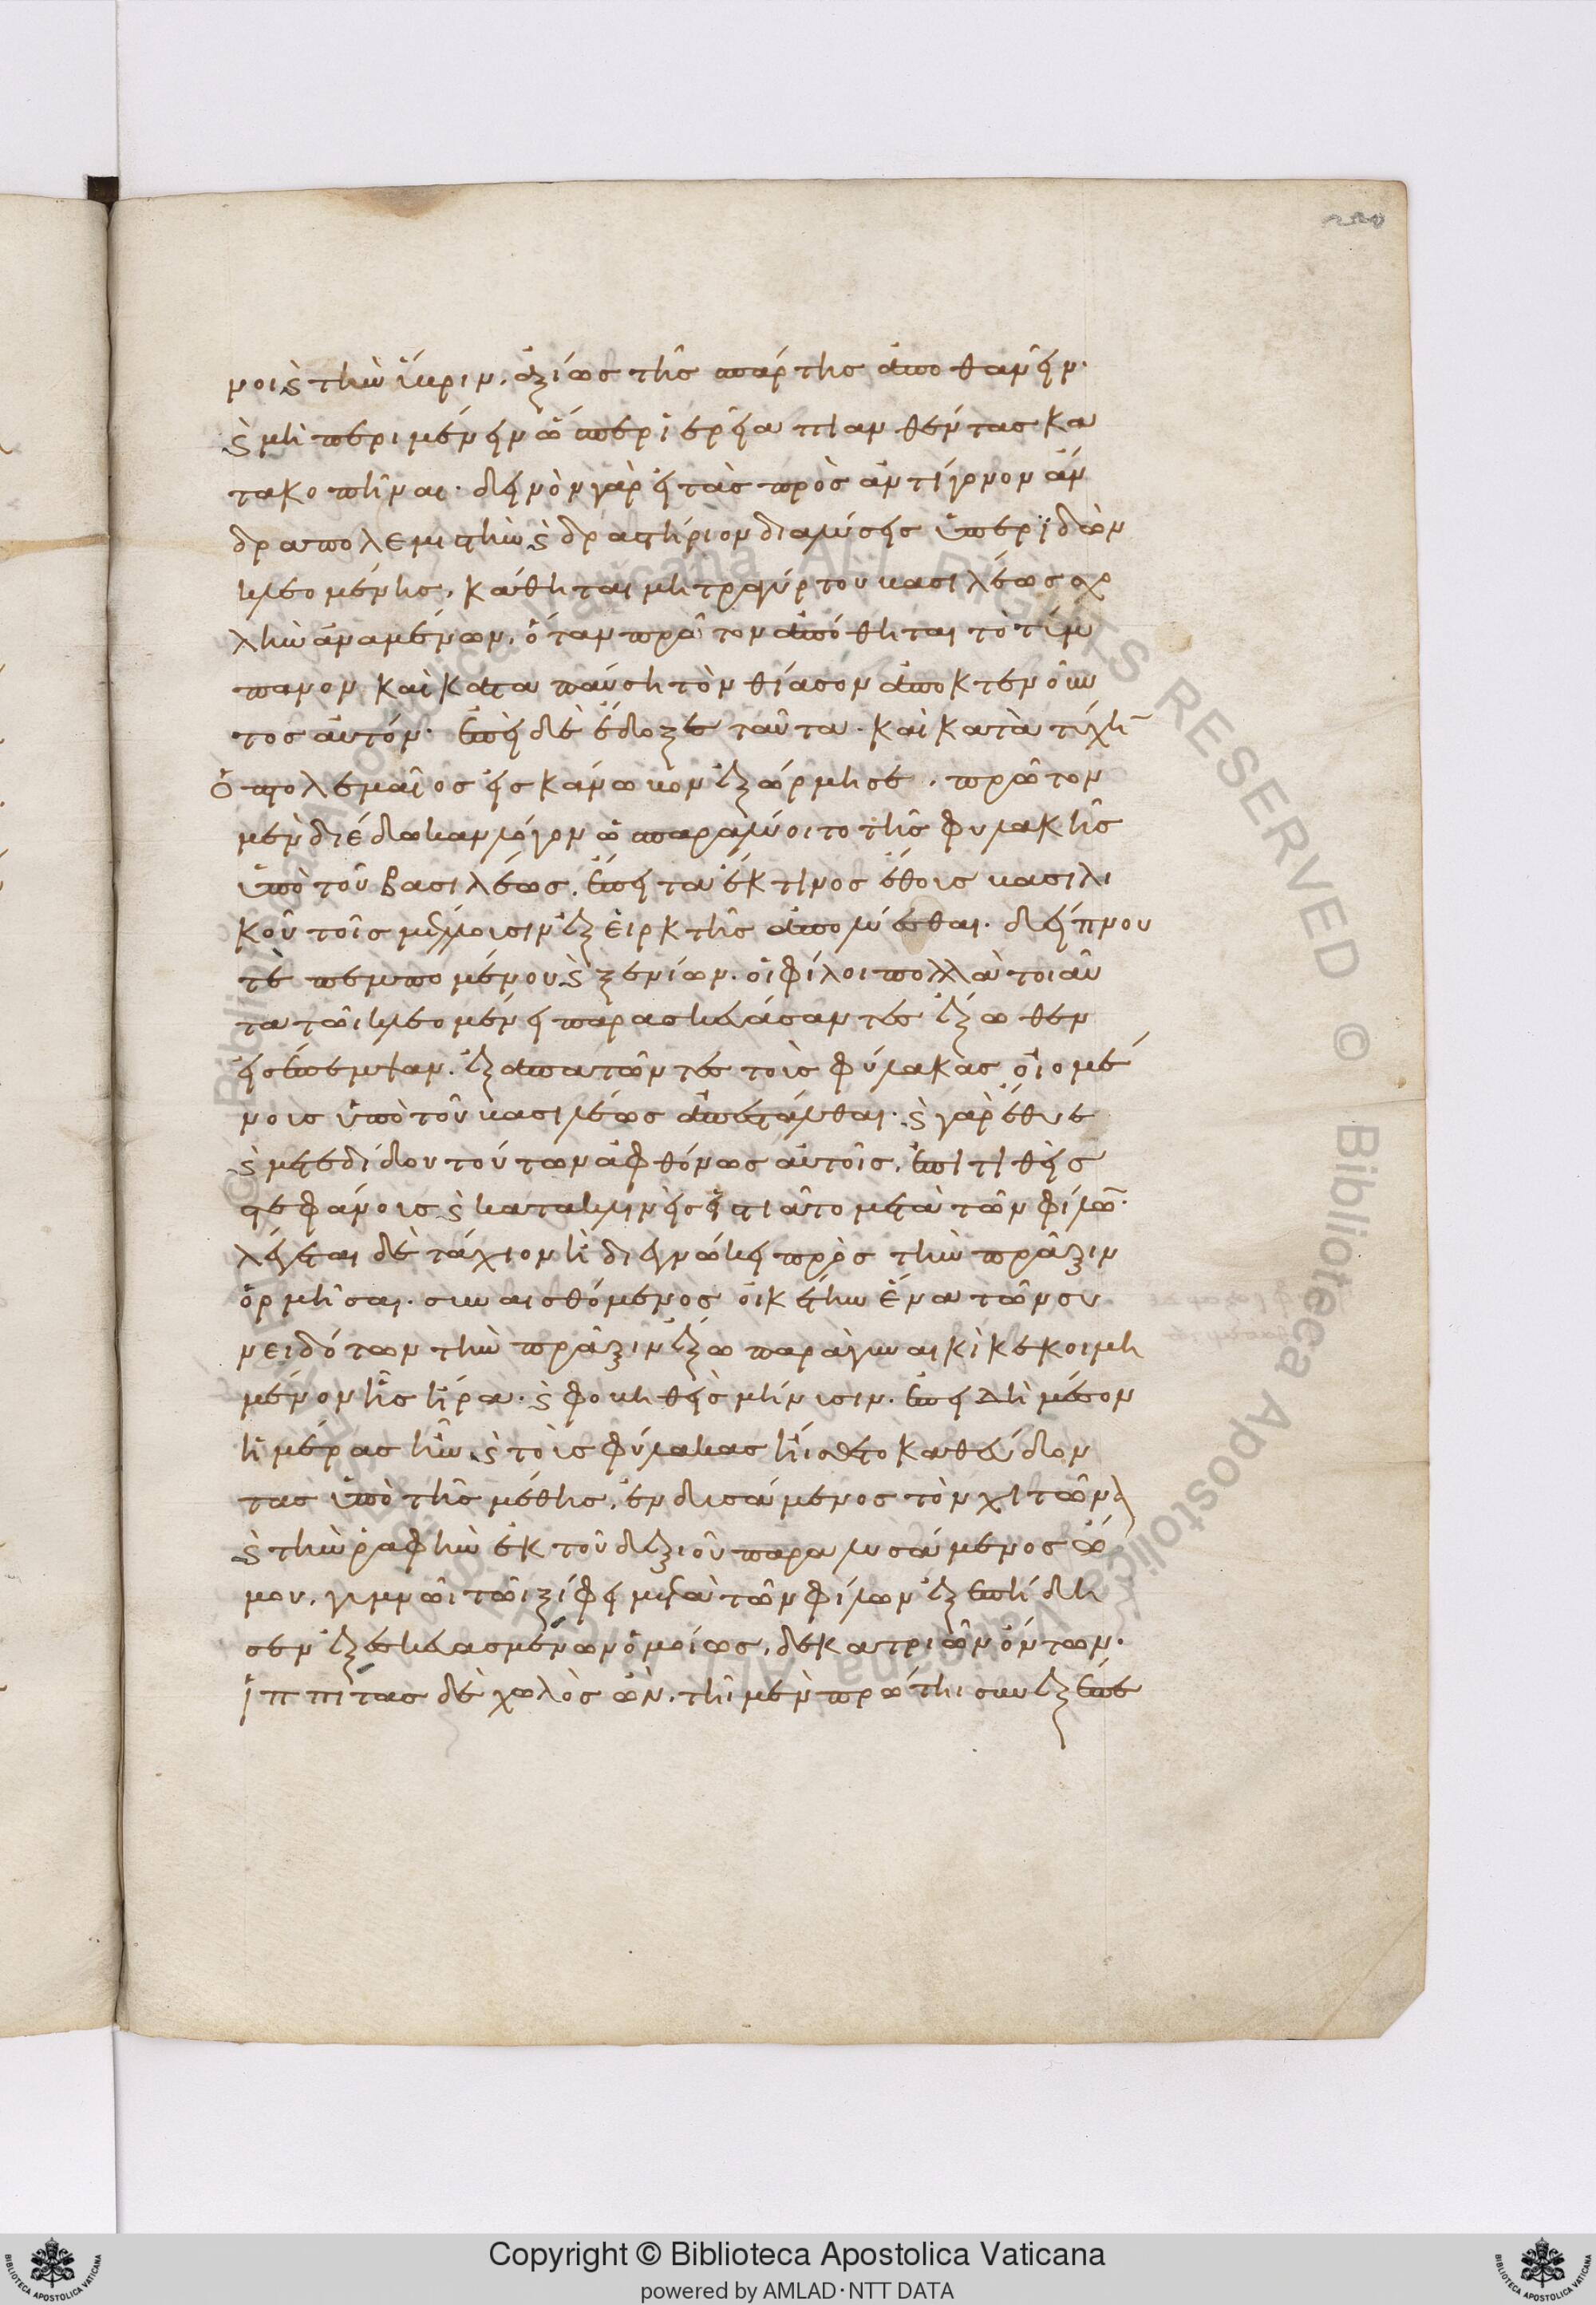 220
νους τὴν ὕβριν, ἀξίως τῆς σπάρτης ἀποθανεῖν·
καὶ μὴ περιμένειν ὥσπερ ἱερεῖα πιανθέντας κα
τακοπῆναι· δεινὸν γὰρ εἰ τὰς πρὸς ἀντίγονον ἄν
δρα πολεμιστὴν καὶ δραστήριον διαλύσεις ὑπεριδὼν
κλεομένης, κάθηται μητραγύρτου βασιλέως σχο
λὴν ἀναμένων, ὅταν πρῶτον ἀπόθηται τὸ τύμ
πανον καὶ καταπαύση τὸν θίασον ἀποκτενοῦν
τος αὐτόν· ἐπεὶ δὲ ἔδοξε ταῦτα· καὶ κατὰ τύχην
ὁ πτολεμαῖος εἰς κάνωβον ἐξώρμησε, πρῶτον
μὲν διέδωκαν λόγον ὡς παραλύοιτο τῆς φυλακῆς
ὑπὸ τοῦ βασιλέως, ἔπειτα ἔκ τινος ἔθους βασιλι
κοῦ τοῖς μέλλουσιν ἐξ εἱρκτῆς ἀπολύεσθαι· δείπνου
τὲ πεμπομένου καὶ ξενίων· οἱ φίλοι πολλὰ τοιαῦ
τα τῶι κλεομένει παρασκευάσαντες ἔξωθεν
εἰσέπεμψαν· ἐξαπατῶντες τοὺς φύλακας οἰομέ
νους ὑπὸ τοῦ βασιλέως ἀπεστάλθαι· καὶ γὰρ ἔθυε
καὶ μετεδίδου τούτων ἀφθόνως αὐτοῖς, ἐπιτιθεὶς
στεφάνους καὶ κατακλιθεὶς εἱστιᾶτο μετὰ τῶν φίλων·
λέγεται δὲ τάχιον ἢ διεγνώκει πρὸς τὴν πρᾶξιν
ὁρμῆσαι· συναισθόμενος οἰκέτην ἕνα τῶν συ
νειδότων τὴν πρᾶξιν ἔξω παρὰ γυναικὶ κεκοιμη
μένον ἧς ἤρα· καὶ φοβηθεὶς μήνυσιν· ἐπειδὴ μέσον
ἡμέρας ἦν, καὶ τοὺς φύλακας ἤισθετο καθεύδον
τας ὑπὸ τῆς μέθης, ἐνδυσάμενος τὸν χιτῶνα
καὶ τὴν ῥαφὴν ἐκ τοῦ δεξιοῦ παραλυσάμενος ὤ
μου, γυμνῶι τῶι ξίφει μετὰ τῶν φίλων ἐξεπήδη
σεν ἐξεσκευασμένων ὁμοίως, δεκατριῶν ὄντων·
ἱππίτας δὲ χωλὸς ὢν, τῆι μὲν πρώτηι συνεξέπε